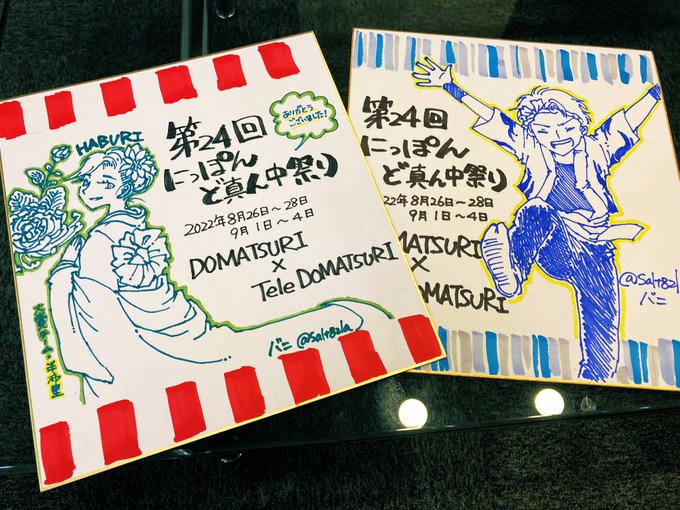 HABURI
第24回
にっぽん
ど真ん中祭り
ありがとう
ございました!
2022年8月26日〜28日
9月1日〜4日
DOMATSURI
×
Tele DOMATSURI
バニ @Salt82la
第24回
にっぽん
ど真ん中祭り
22年8月26日〜28日
9月1日〜4日
MATSURI
×
OMATSURI
@Salt82la
バニ